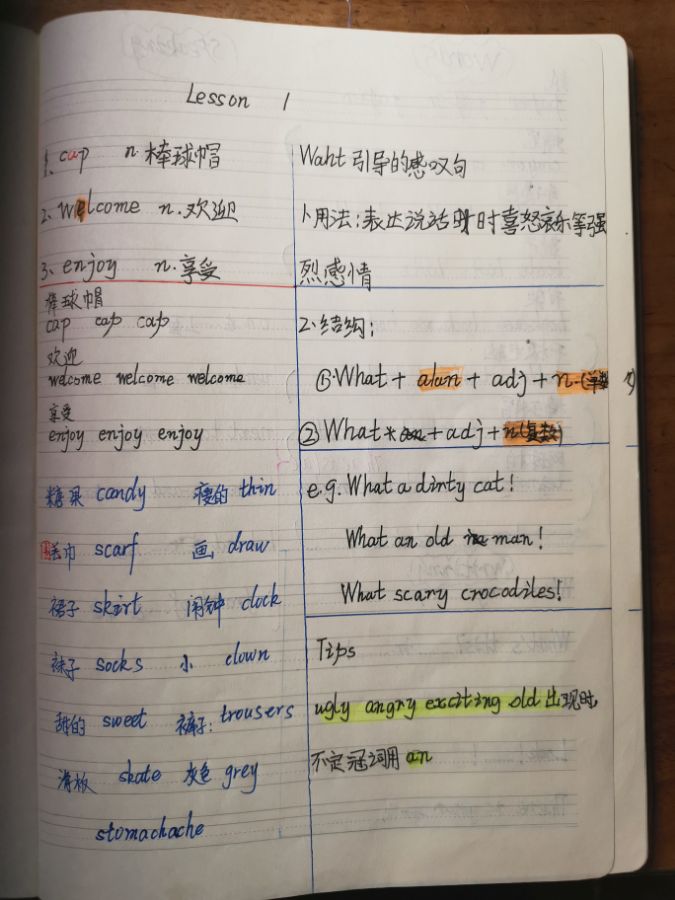 Lesson 1
1、cap n.棒球帽
2、welcome n.欢迎
3、enjoy n.享受
棒球帽
cap cap cap
欢迎
welcome welcome welcome
享受
enjoy enjoy enjoy
糖果 candy 瘦的 thin
围巾 scarf 画 draw
裙子 skirt 闹钟 clock
袜子 socks 小 clown
甜的 sweet 裤子: trousers
滑板 skate 灰色 grey
stomachache
Waht 引导的感叹句
1、用法:表达说话时喜怒哀乐等强
烈感情
2、结构:
①.What + a/an + adj + n.(单数)
② What + adj + n(复数)
e.g. What a dirty cat!
What an old man!
What scary crocodiles!
Tips
ugly angry exciting old 出现时,
不定冠词用 an